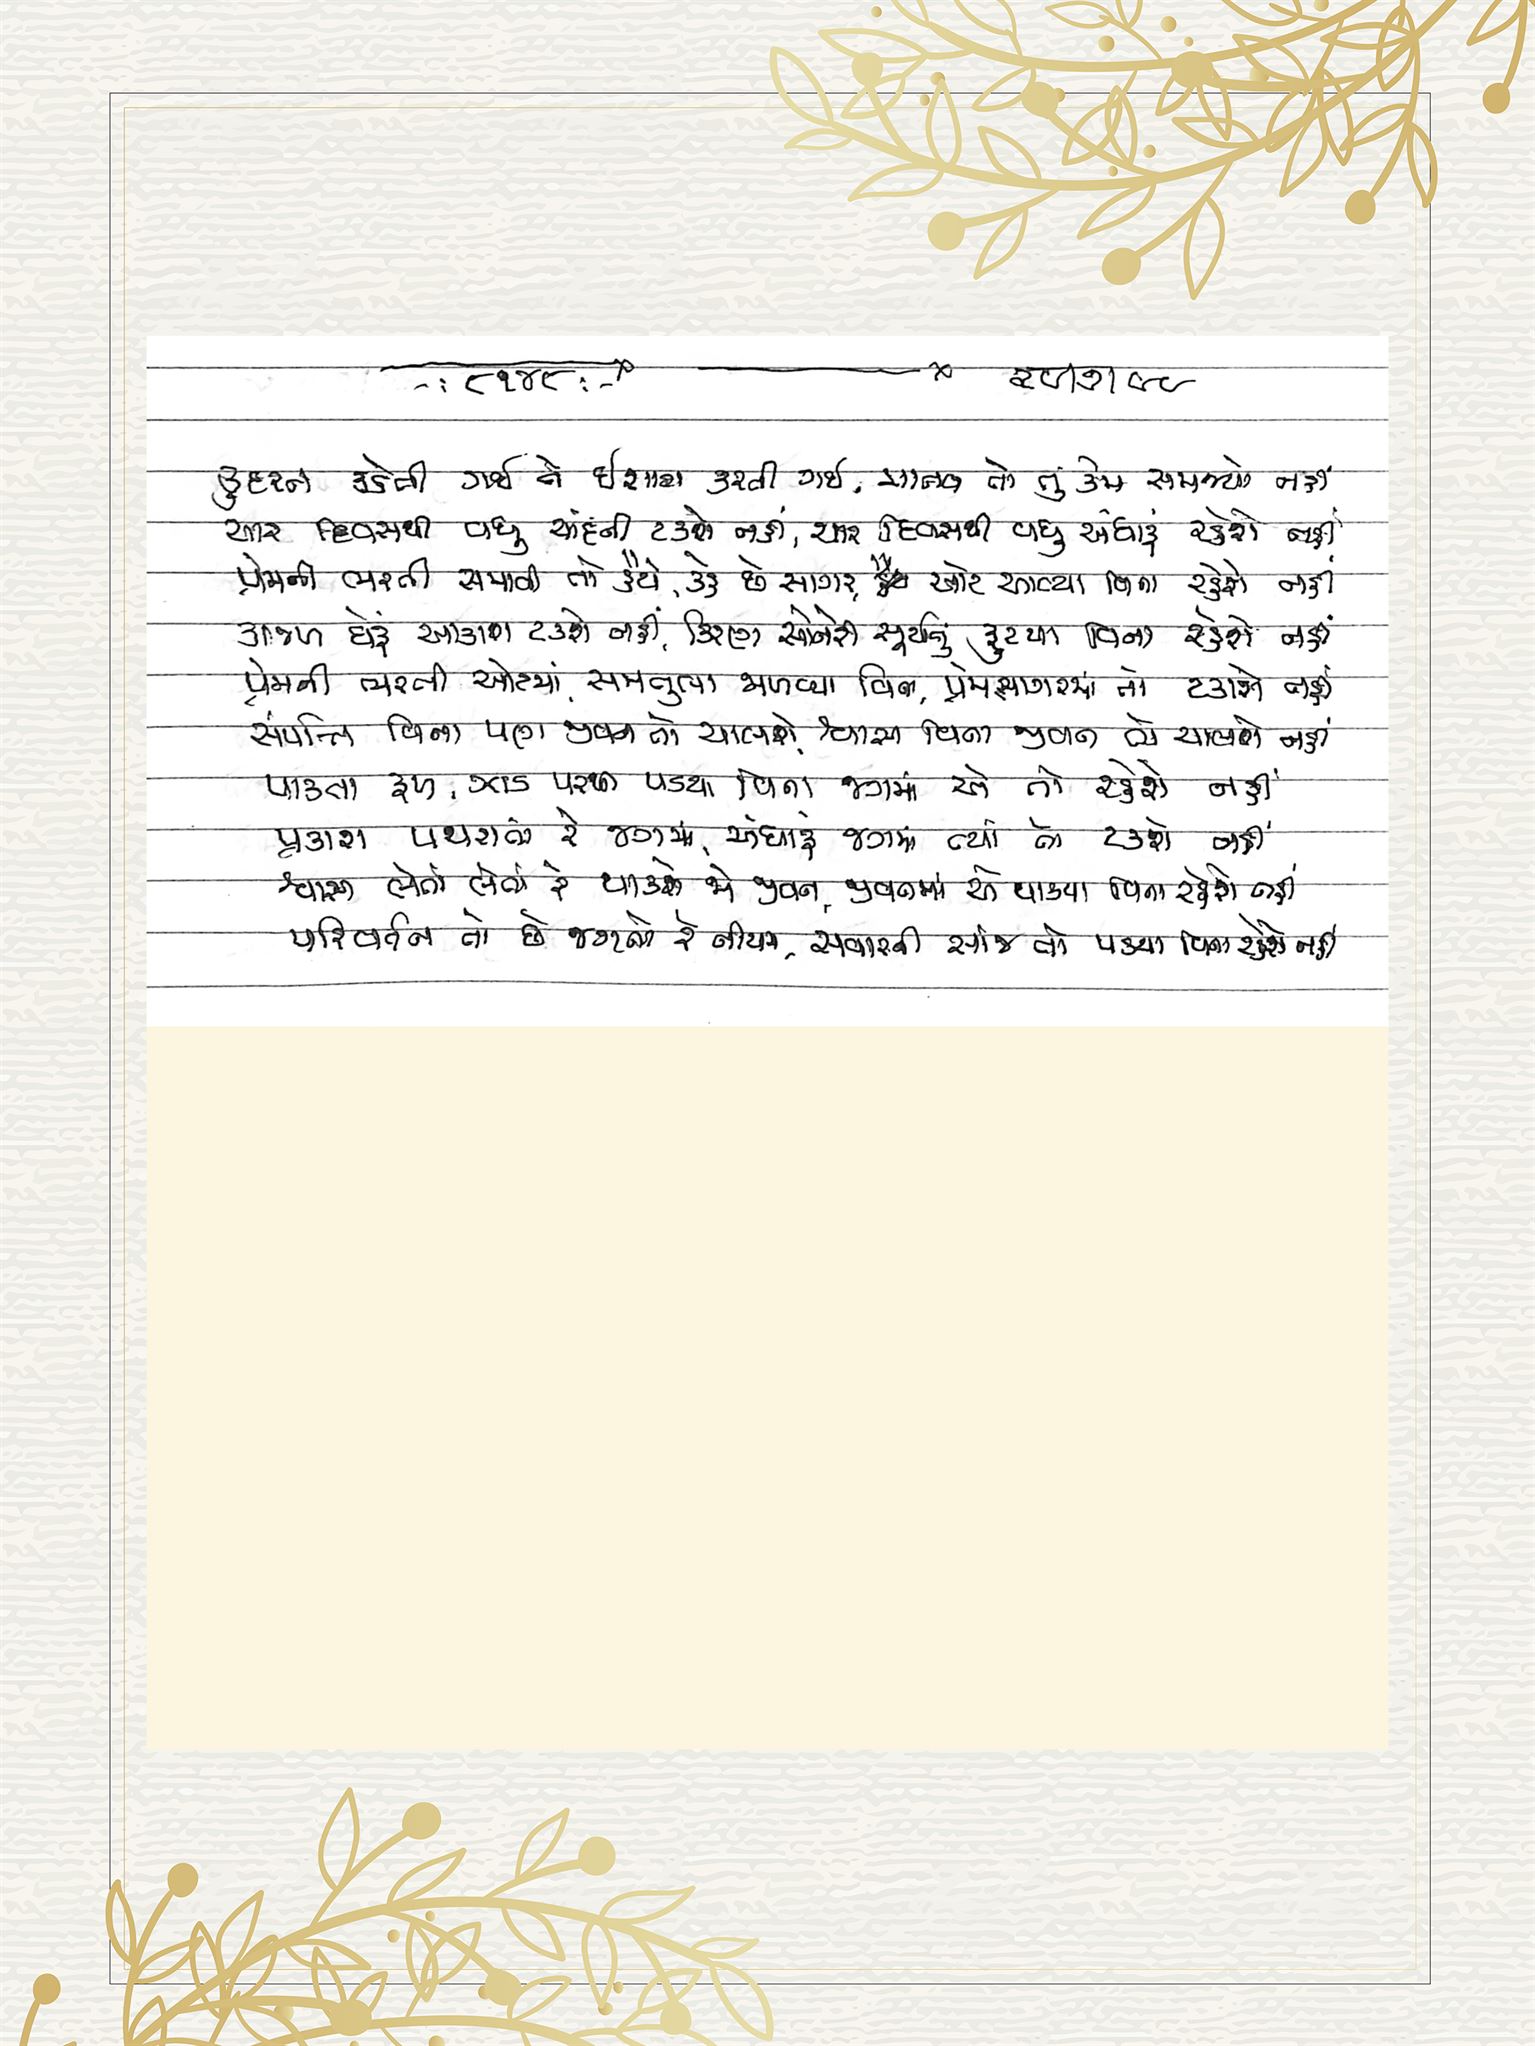 -: ૮૧૪૯ :-
કુદરત કહેતી ગઈ ને ઈશારા કરતી ગઈ, માનવ તો તું કેમ સમજ્યો નહીં
ચાર દિવસથી વધુ ચાંદની ટકશે નહીં, ચાર દિવસથી વધુ અંધારું રહેશે નહીં
પ્રેમની ભરતી સમાવી તો હૈયે, હૈયું છે સાગર, ઓટ આવ્યા વિના રહેશે નહીં
કાજળ ઘેરું આકાશ ટકશે નહીં, કિરણ સોનેરી સૂર્યનું ફુટયા વિના રહેશે નહીં
પ્રેમની ભરતી ઓટમાં, સમતુલા મળવ્યા વિના, પ્રેમસાગરમાં તો ટકાશે નહીં
સંપત્તિ વિના પણ જીવન તો ચાલશે, શ્વાસ વિના જીવન તો ચાલશે નહીં
પાકતા ફળ, ઝાડ પરથી પડયા વિના જગમાં એ તો રહેશે નહીં
પ્રકાશ પથરાતાં રે જગમાં, અંધારું જગમાં ત્યાં તો ટકશે નહીં
શ્વાસ લેતાં લેતાં રે થાકશે જે જીવન, જીવનમાં એ થાકયા વિના રહેશે નહીં
પરિવર્તન તો છે જગતનો રે નીયમ, સવારની સાંજ તો પડયા વિના રહેશે નહીં